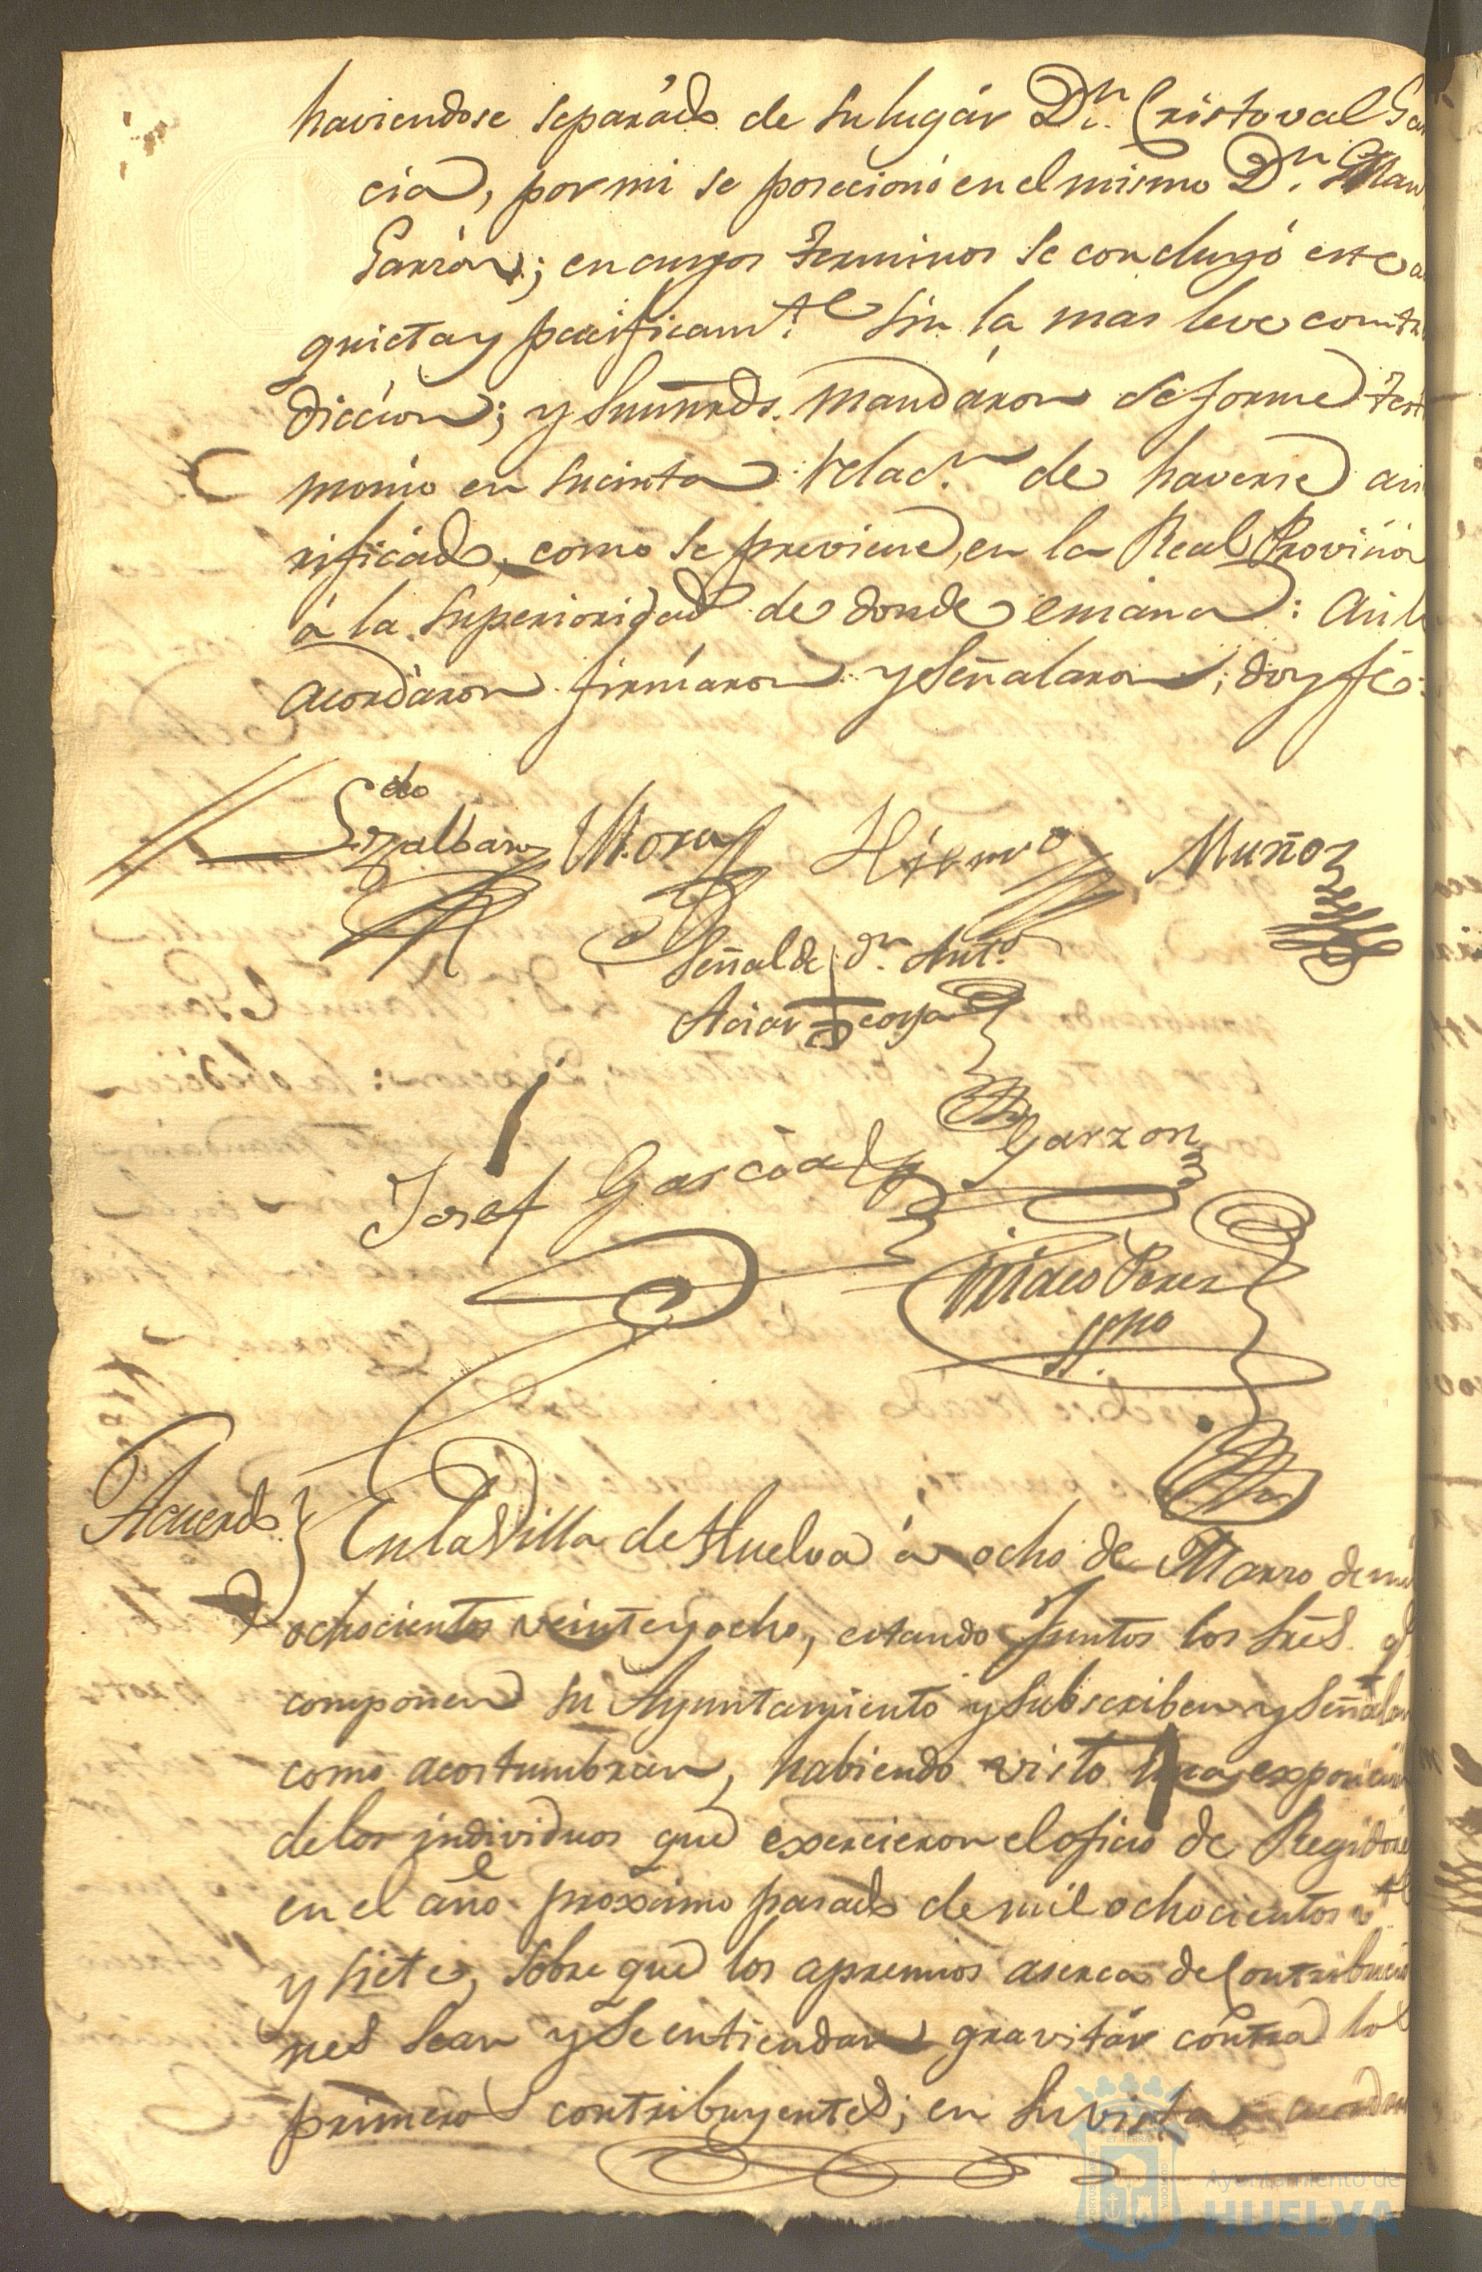 haviendose separádo de su lugár Dn. Cristoval Gar
cia, por mi se poseciono en el mismo Dn. Man
Garzón; en cuyos terminos se concluyó este a
quieta y pacificamte. sin la mas leve contra
diccion; y sus mrds. mandáron se forme testi
monio en sucinta relacn. de haverse asi
rificado, como se previene, en la Real Provision
á la superioridad de donde emana: asi lo
acordáron firmáron y señalaron, doy fé.
Ldo
Mora Hierro Muñoz
Señal de Dn. Anto.
Garzon
Josef Garcia
Perez
ppco
Acuerdo
En la Villa de Huelva á ocho de Marzo de mil
ochocientos veinte y ocho, estando juntos los Sres. q
componen su Ayuntamiento y subscriben y señalan
como acostumbran, habiendo visto una exposicion
de los individuos que exercieron el oficio de Regidores
en el año proximo pasado de mil ochocientos vte
y siete, sobre que los apremios aserca de Contribucio
nes sean y se entiendan gravitár contra los
primeros contribuyentes; en su vista acordaron
Ayuntamiento de
HUELVA